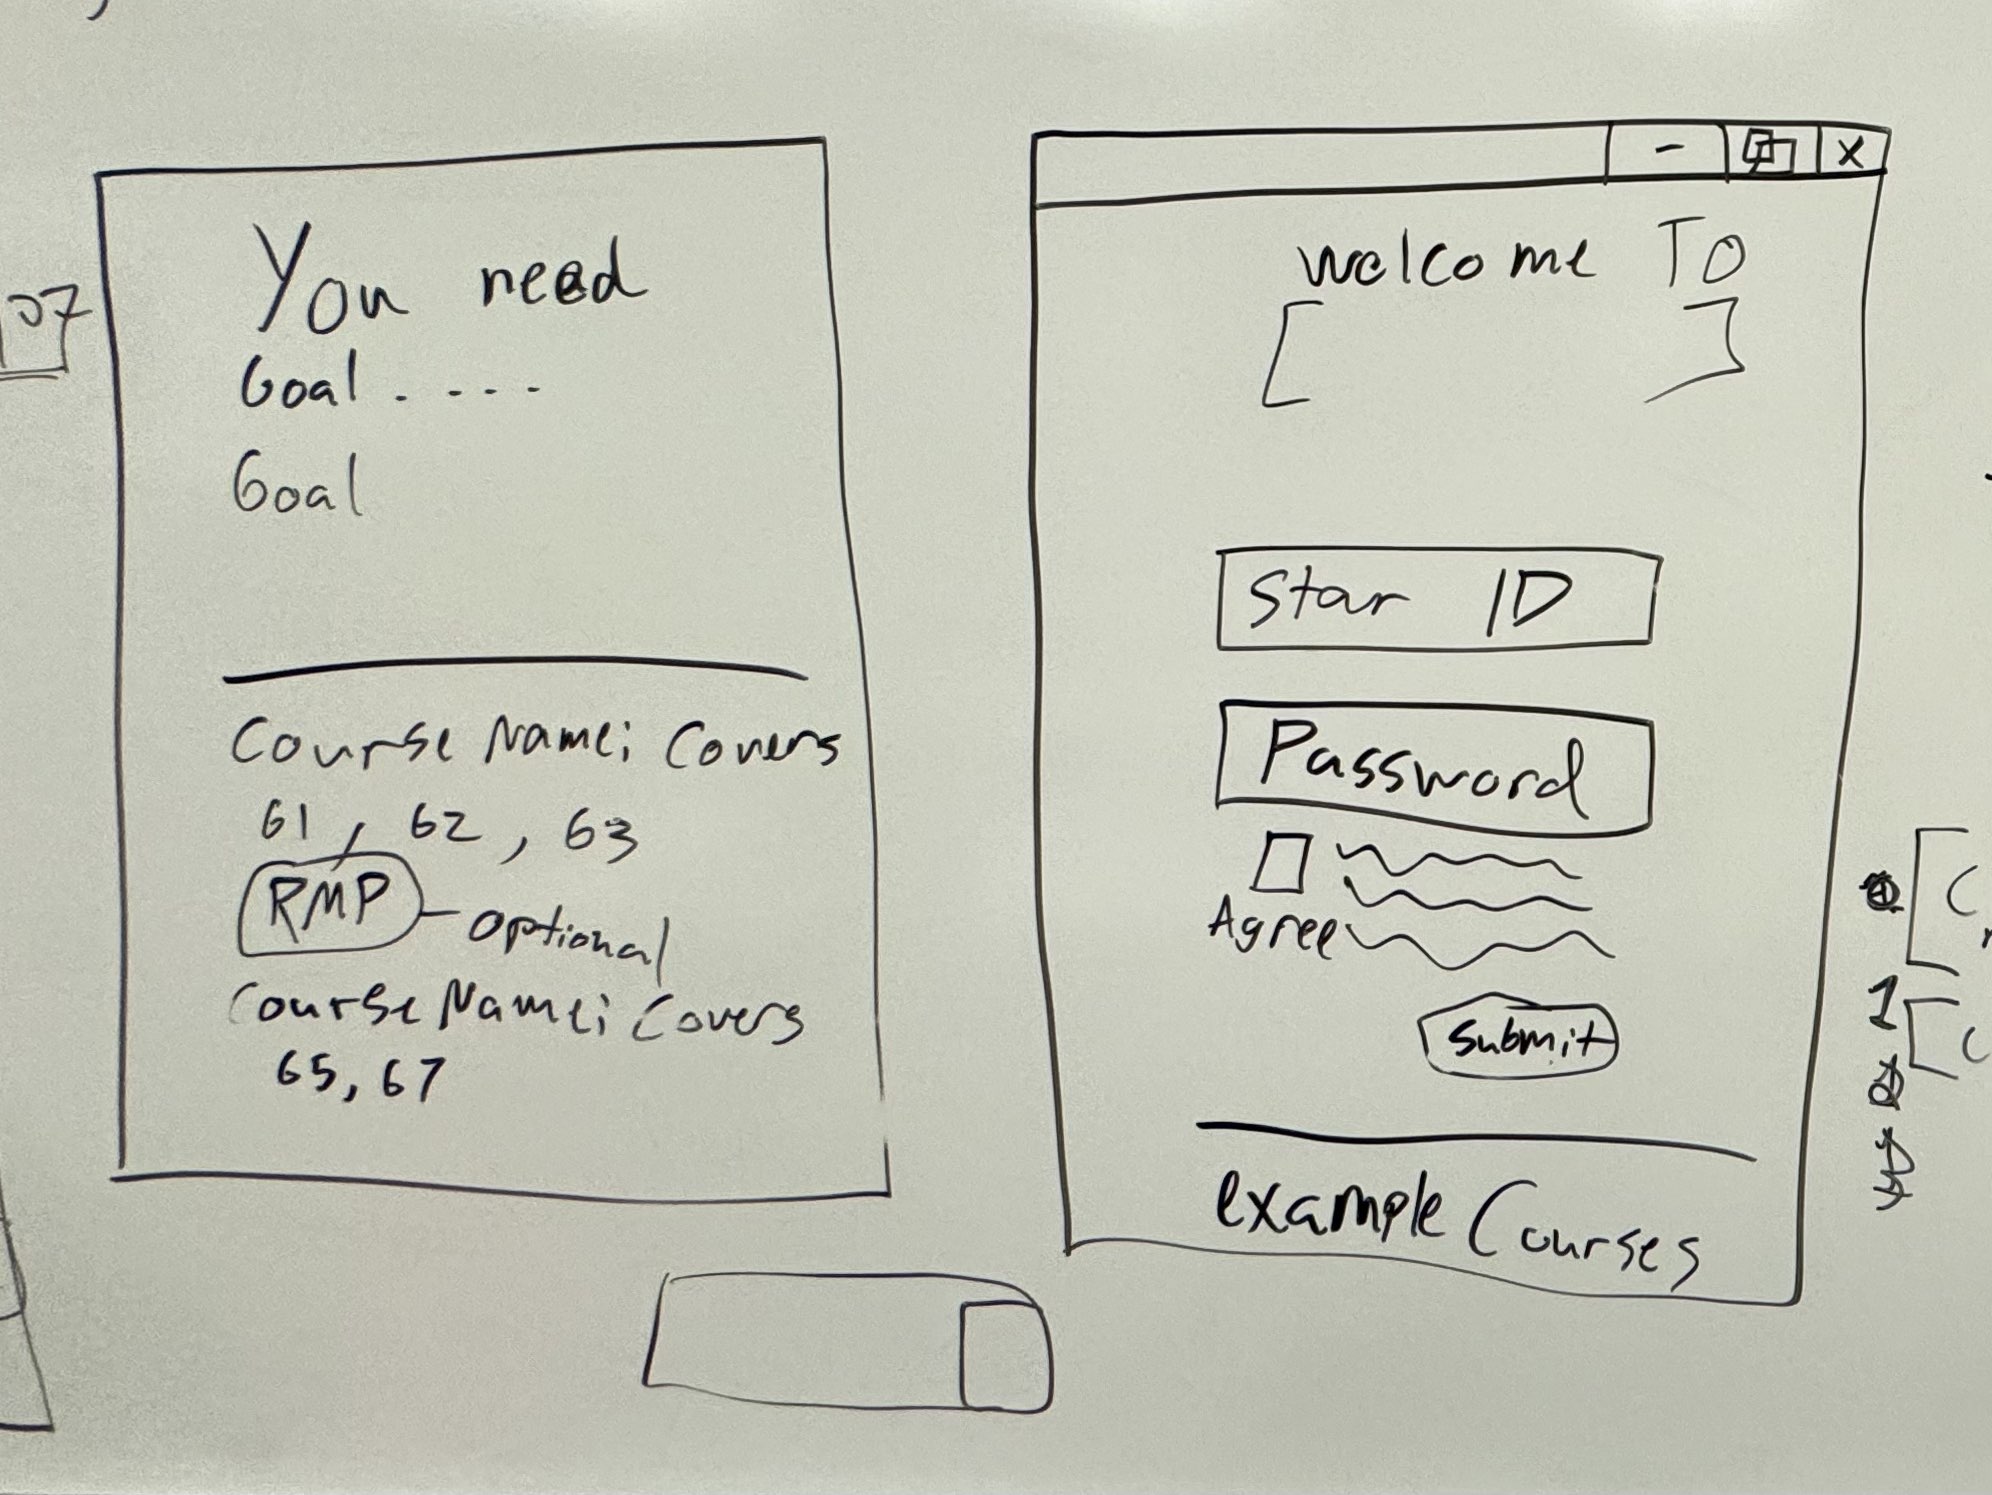 07
You need
Goal . - - -
Goal
Course Name: Covers
61, 62, 63
RMP - optional
Course Name: Covers
65, 67
- X
welcome To
[ ]
Star ID
Password
Agree
Submit
example Courses
1